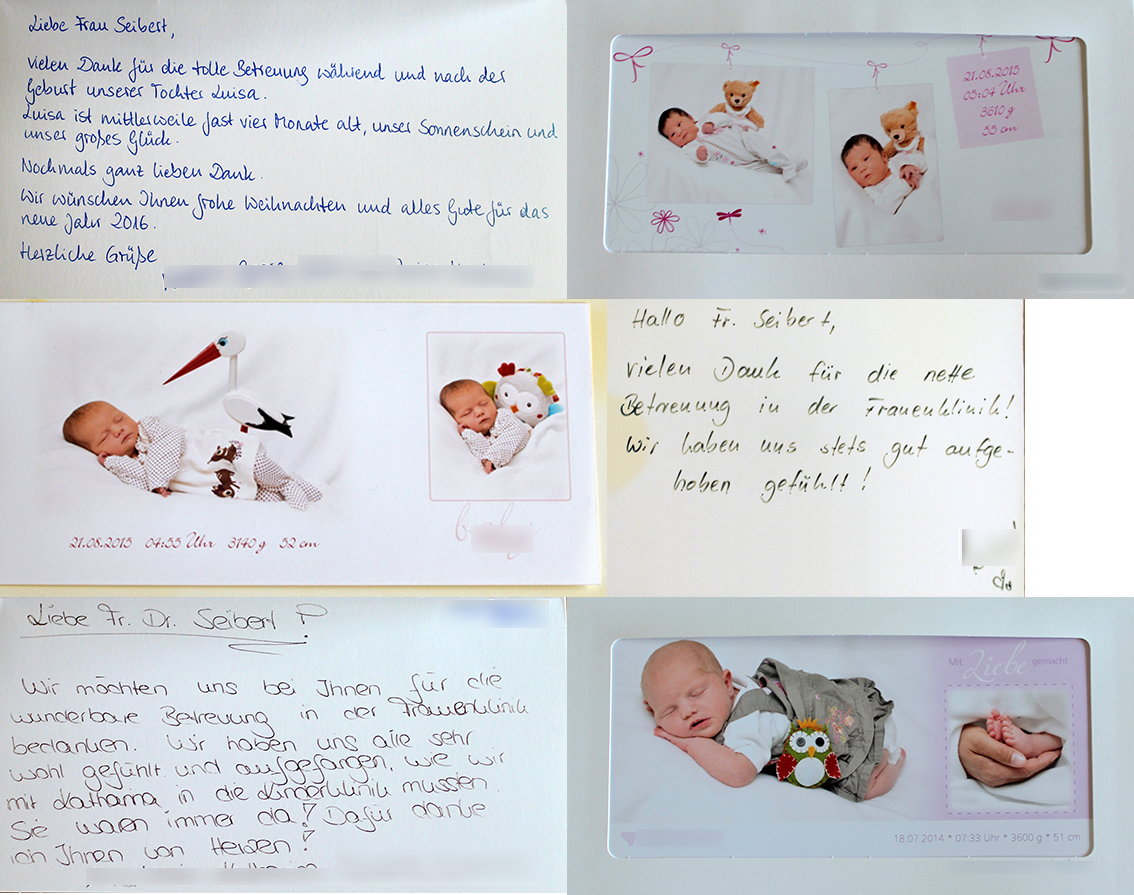 Liebe Frau Seibert,
vielen Dank für die tolle Betreuung während und nach der
Geburt unserer Tochter Luisa.
Luisa ist mittlerweile fast vier Monate alt, unser Sonnenschein und
unser großes Glück.
Nochmals ganz lieben Dank.
Wir wünschen Ihnen frohe Weihnachten und alles Gute für das
neue Jahr 2016.
Herzliche Grüße
21.08.2015
05:04 Uhr
3610 g
55 cm
21.08.2015 04:55 Uhr 3140 g 52 cm
Hallo Fr. Seibert,
vielen Dank für die nette
Betreuung in der Frauenklinik!
Wir haben uns stets gut aufge-
hoben gefühlt!
Liebe Fr. Dr. Seibert!
Wir möchten uns bei Ihnen für die
wunderbare Betreuung in der Frauenklinik
bedanken. Wir haben uns alle sehr
wohl gefühlt und aufgefangen, wie wir
mit Katharina in die Kinderklinik mussten.
Sie waren immer da! Dafür danke
ich Ihnen von Herzen!
Mit Liebe gemacht
18.07.2014 * 07:33 Uhr * 3600 g * 51 cm